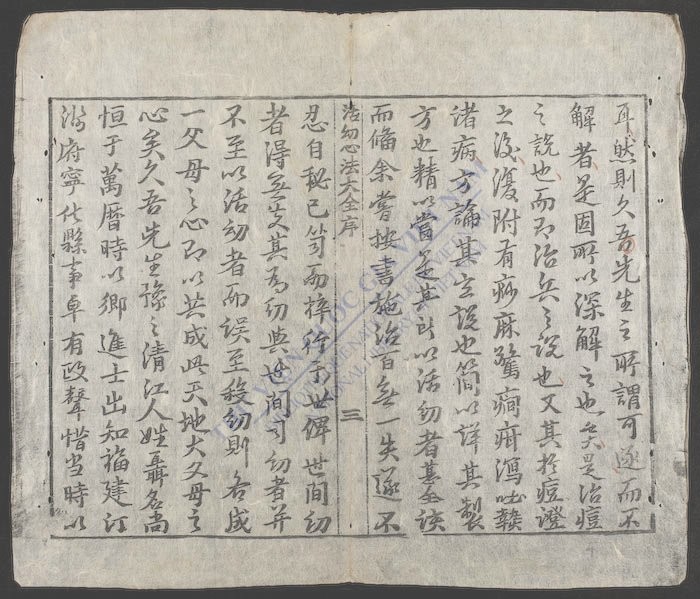 耳然則久吾先生之所謂可逐而不
解者是固所以深解之也矣是治痘
之說也而即治兵之說也又其於痘證
之後復附有痧麻驚癎疳瀉吐
諸病方論其立說也簡以詳其製
方也精以當是其所以活幼者甚
而備余嘗按書施治百無一失遂不
活幼心法大全序
三
忍自秘已笥而梓行于世俾世間幼
者得無夭其為幼與世間司幼者并
不至以活幼者而誤至殺幼則各成
一父母之心即以共成此天地大父母之
心矣久吾先生豫之清江人姓聶名尚
恒于萬曆時以鄉進士出知福建汀
府寧化縣事卓有政聲惜當時以